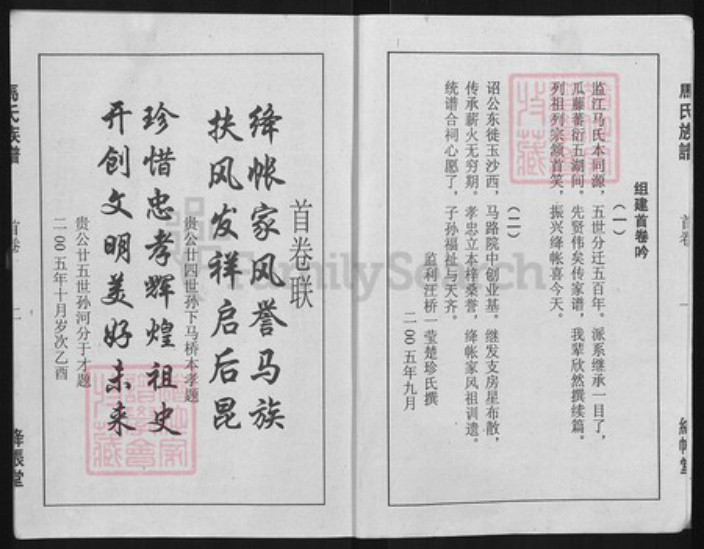 馬氏族譜
首卷
一
絳帳堂
组建首卷吟
(一)
监江马氏本同源，五世分迁五百年。派系继承一目了，
瓜藤蕃衍五湖间。先贤伟矣传家谱，我辈欣然撰续篇。
列祖列宗颔首笑，振兴绛帐喜今天。
(二)
诏公东徙玉沙西，马路院中创业基。继发支房星布散，
传承薪火无穷期。孝忠立本梓桑誉，绛帐家风祖训遗。
统谱合祠心愿了，子孙福祉与天齐。
监利汪桥一莹楚珍氏撰
二00五年九月
首卷联
绛帐家风誉马族
扶风发祥启后昆
贵公廿四世孙下马桥本孝题
珍惜忠孝辉煌祖史
开创文明美好未来
贵公廿五世孙河分于才题
二00五年十月岁次乙酉
馬氏族譜
首卷
二
絳帳堂
FamilySearch